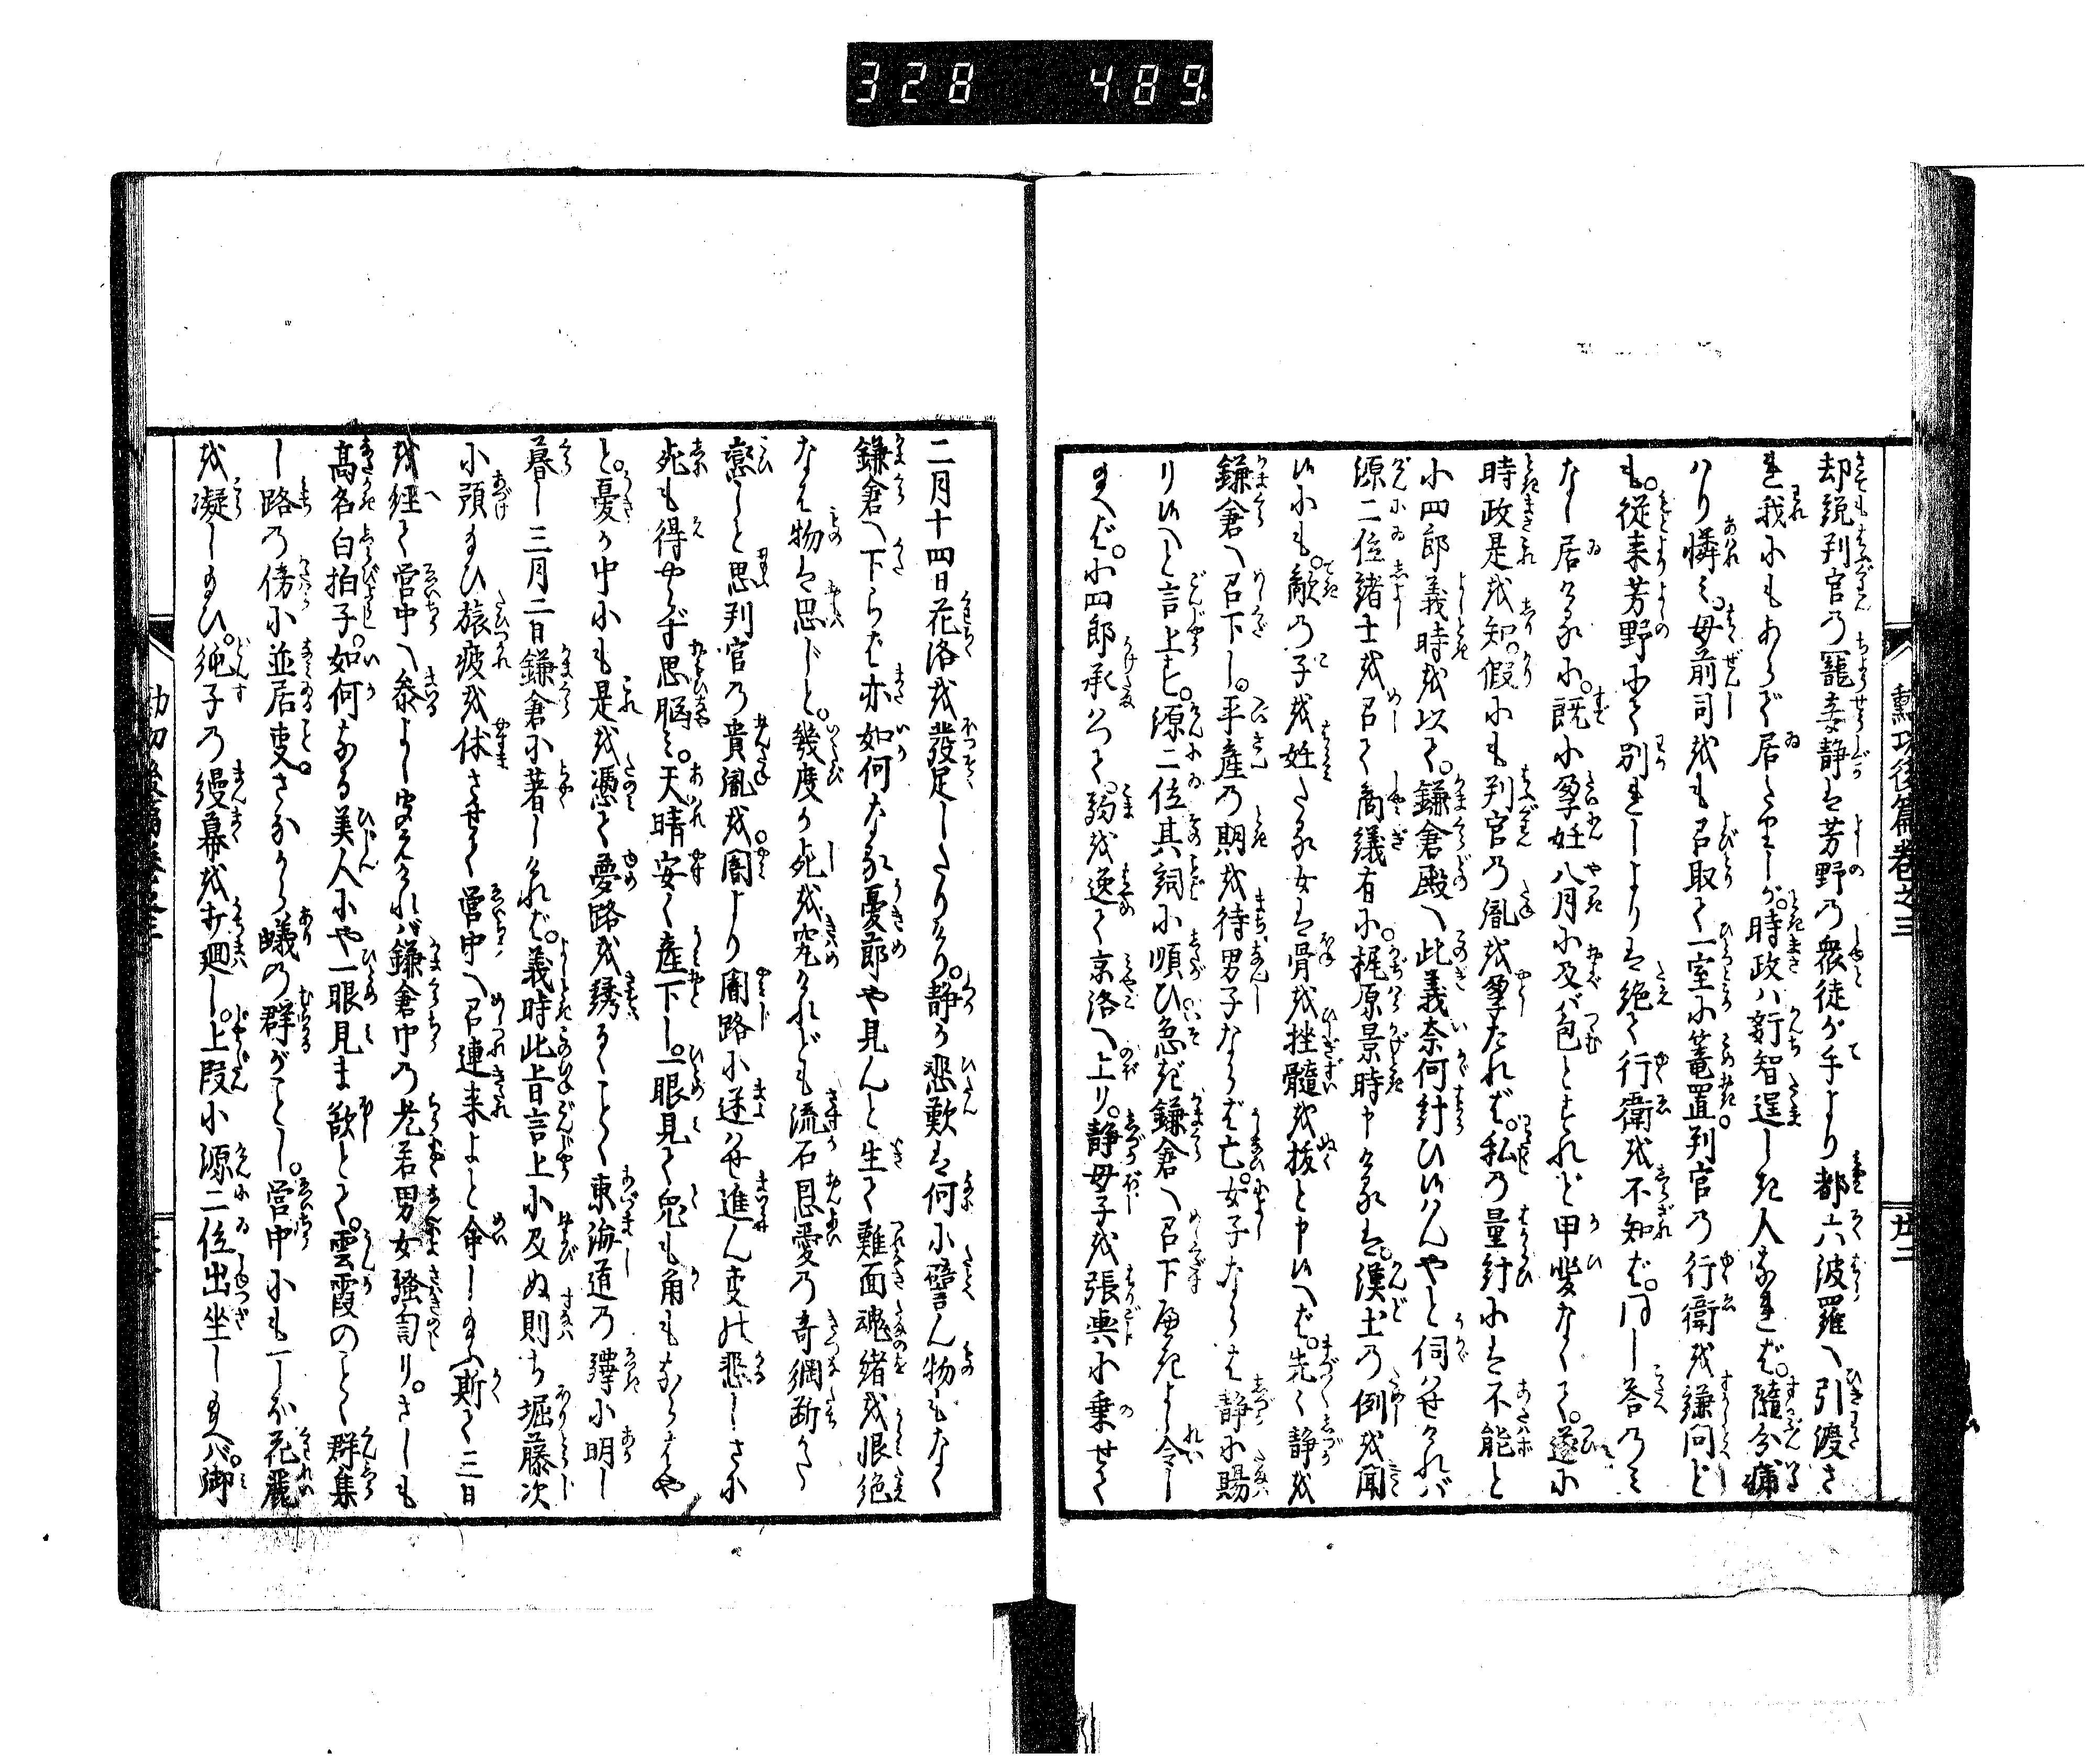 328 489
勲功後篇巻之三
廿二
却説判官の寵妾静は芳野の衆徒が手より都六波羅へ引渡さ
れ我にもあらで居たりしが。時政ハ新智逞しき人なれば。随分痛
はり憐み。母前司をも召取て一室に篭置。判官の行衛を譲問ど
も。従来芳野にて別れしよりは絶て行衛を不知ば。同し答のみ
なし居けるに。既に孕妊八月に及バ包とすれど甲斐なくて。遂に
時政是を知。假にも判官の胤を孕たれば。私の量計には不能と
小四郎義時を以て。鎌倉殿へ此義奈何計ひ候はんやと伺はせけれバ
源二位諸士を召て商議有に。梶原景時申けるは。漢土の例を聞
候にも。敵の子を妊たる女は骨を挫髓を抜と申候へば。先く静を
鎌倉へ召下し。平産の期を待男子ならば亡。女子ならは静に賜
り候へと言上す。源二位其詞に順ひ急ぎ鎌倉へ召下すべきよし令し
玉へば。小四郎承はりて。駒を逸て京洛へ上り。静母子を張輿に乗せて
二月十四日花洛を發足したりけり。静が悲歎は何に譬ん物もなく
鎌倉へ下らば亦如何なる憂節や見んと生て難面魂緒を恨絶
なは物は思じと。幾度か死を究けれども流石恩愛の奇綱断がたう
戀しと思判官の貴胤を闇より闇路に迷はせ進ん事の悲しさに
死も得やらず思脳み。天晴安く産下し。一眼見て兎も角もならはや
と。憂が中にも是を憑て夢路を綉るごとく東海道の驛に明し
暮し三月二日鎌倉に著しければ。義時此旨言上に及ぬ則ち堀藤次
に預玉ひ旅疲を休させて営中へ召連来よと命し玉ふ斯て三日
を經て営中へ参よし聞えけれバ鎌倉中の老若男女騒訇り。さしも
高名白拍子。如何なる美人にや一眼見ま欲とて。雲霞のごとく群集
し路の傍に並居事。さながら蟻の群がごとし。営中にも一しほ花麗
を凝し玉ひ。純子の縵幕を打廻し。上段に源二位出坐し玉へバ。御